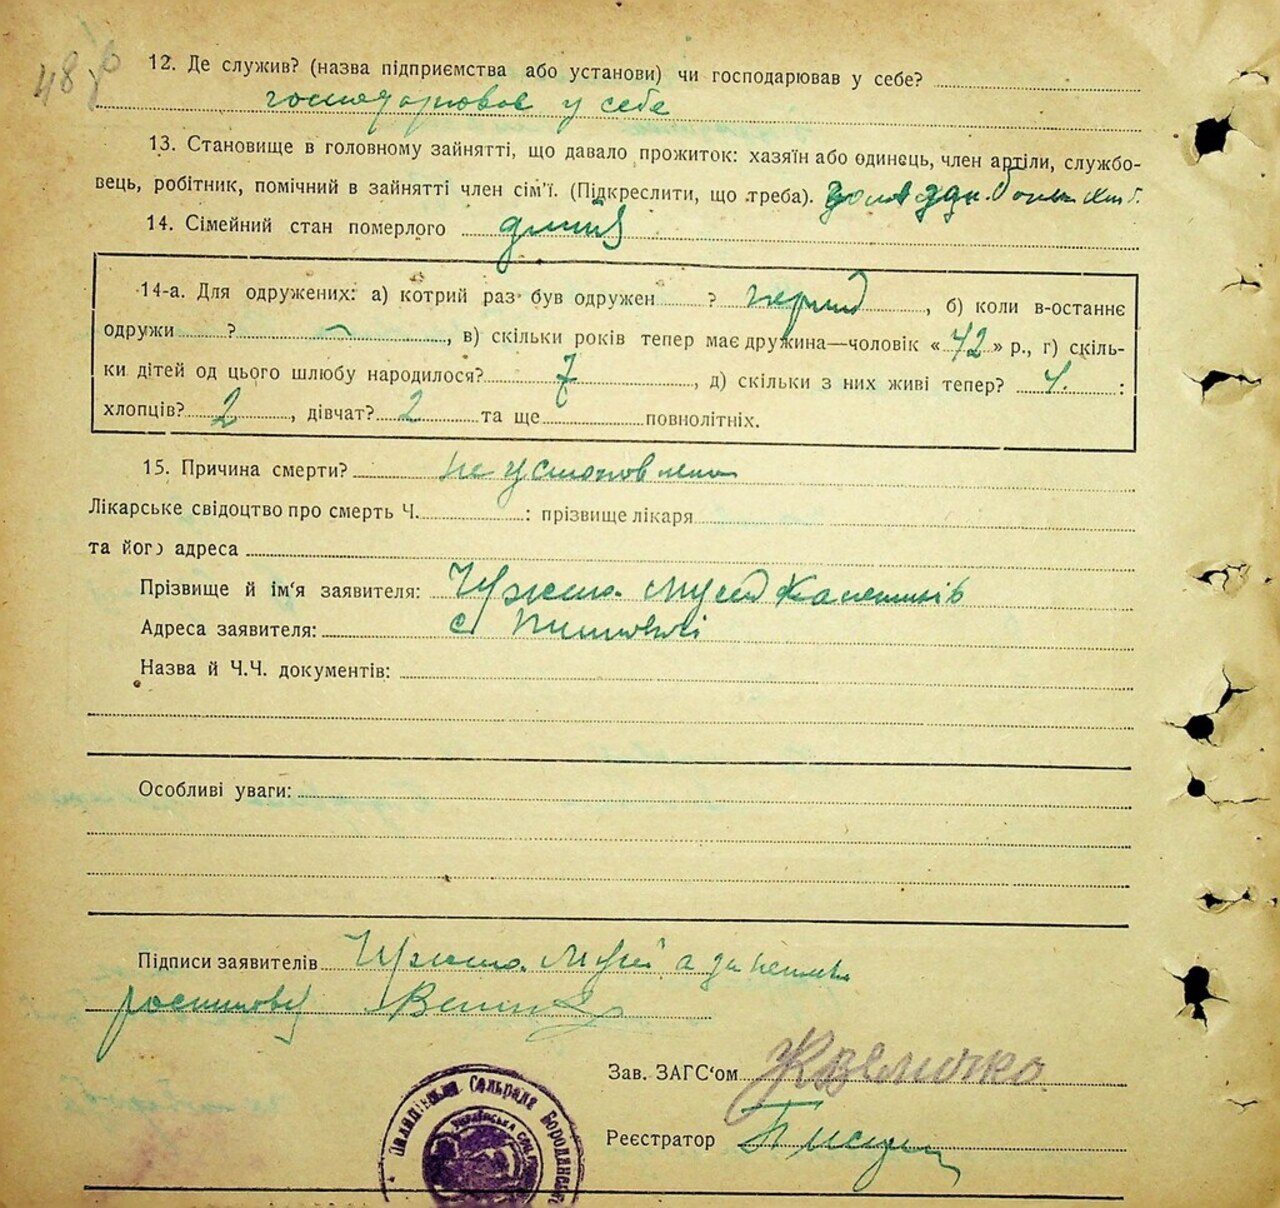 48
12. Де служив? (назва підприємства або установи) чи господарював у себе?
господарював у себе
13. Становище в головному зайнятті, що давало прожиток: хазяїн або одинець, член артіли, службо-
вець, робітник, помічний в зайнятті член сім'ї. (Підкреслити, що треба).
14. Сімейний стан померлого
14-а. Для одружених: а) котрий раз був одружен ? перший, б) коли в-останнє
одружи ? —, в) скільки років тепер має дружина—чоловік «42» р., г) скіль-
ки дітей од цього шлюбу народилося? 7, д) скільки з них живі тепер? 4. :
хлопців? 2, дівчат? 2 та ще повнолітніх.
15. Причина смерти? не установлена
Лікарське свідоцтво про смерть Ч. : прізвище лікаря
та його адреса
Прізвище й ім'я заявителя: Мусій
Адреса заявителя: с
Назва й Ч.Ч. документів:
Особливі уваги:
Підписи заявителів Мусій а за
Зав. ЗАГС'ом Величко
Реєстратор
Сельрада Бородянськ
Українська Соц.